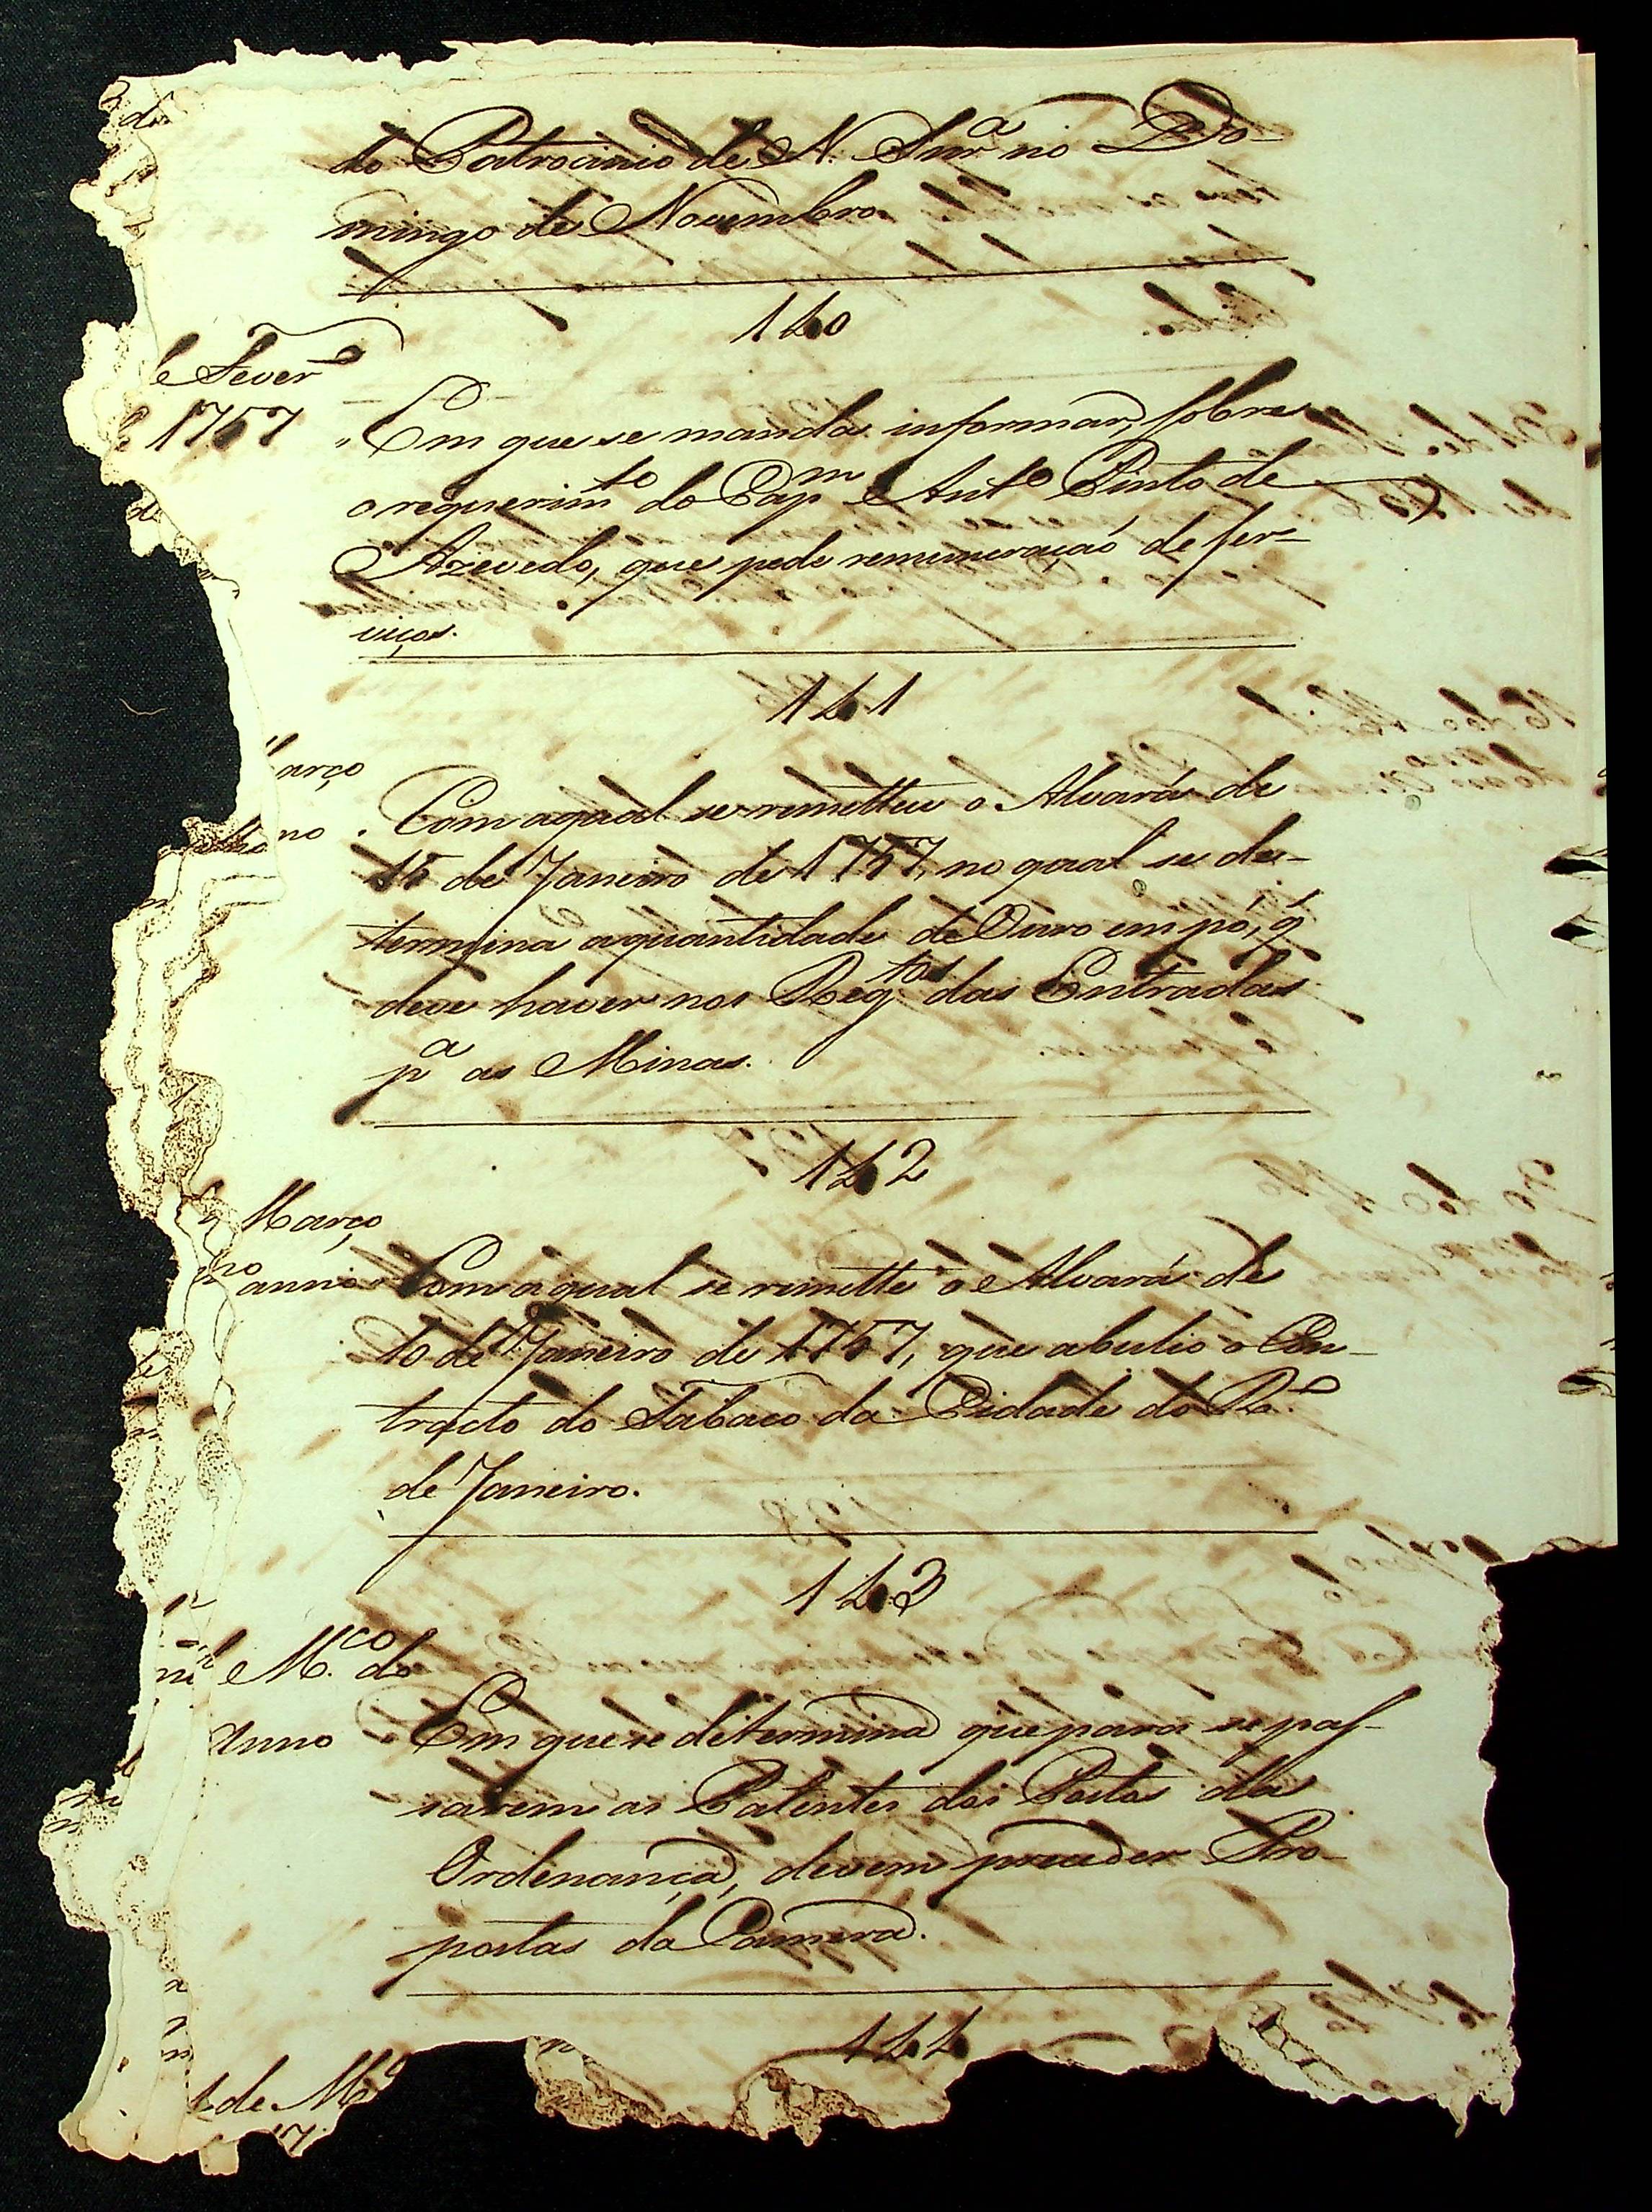 do Patrocinio de N. Snrª no Do-
mingo de Novembro.
140
de Feverº
de 1757
Em que se manda informar, sobre
o requerimto do Capm Antº Pinto de
Azevedo, que pede remuneraçaõ de ser-
viços.
141
arço
no
Com a qual se remetteu o Alvará de
15 de Janeiro de 1757, no qual se de-
termina a quantidade de Ouro em pó, q̃
deve haver nos Regtos das Entradas
pª as Minas.
142
Março
anno
Com a qual se remette o Alvará de
10 de Janeiro de 1757, que abulio o Con-
tracto do Tabaco da Cidade do Rº
de Janeiro.
143
de M.ço do
Anno
Em que se determina que para se pas-
sarem as Patentes dos Postos da
Ordenança, devem preceder Pro-
postas da Camera.
144
de Mº